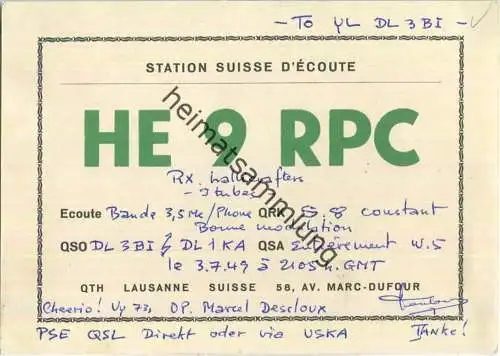 - To YL DL3BI -
STATION SUISSE D'ÉCOUTE
HE 9 RPC
Rx. hallicrafters
- 7 tubes
Ecoute Bande 3,5 Mc/Phone QRK S.8 constant
Bonne modulation
QSO DL3BI DL1KA QSA Entièrement W.5
le 3.7.49 à 2105 h. GMT
QTH LAUSANNE SUISSE 58, AV. MARC-DUFOUR
Cheerio! Vy 73, OP. Marcel Descloux
PSE QSL Direkt oder via USKA Danke!
heimatsammlung.de